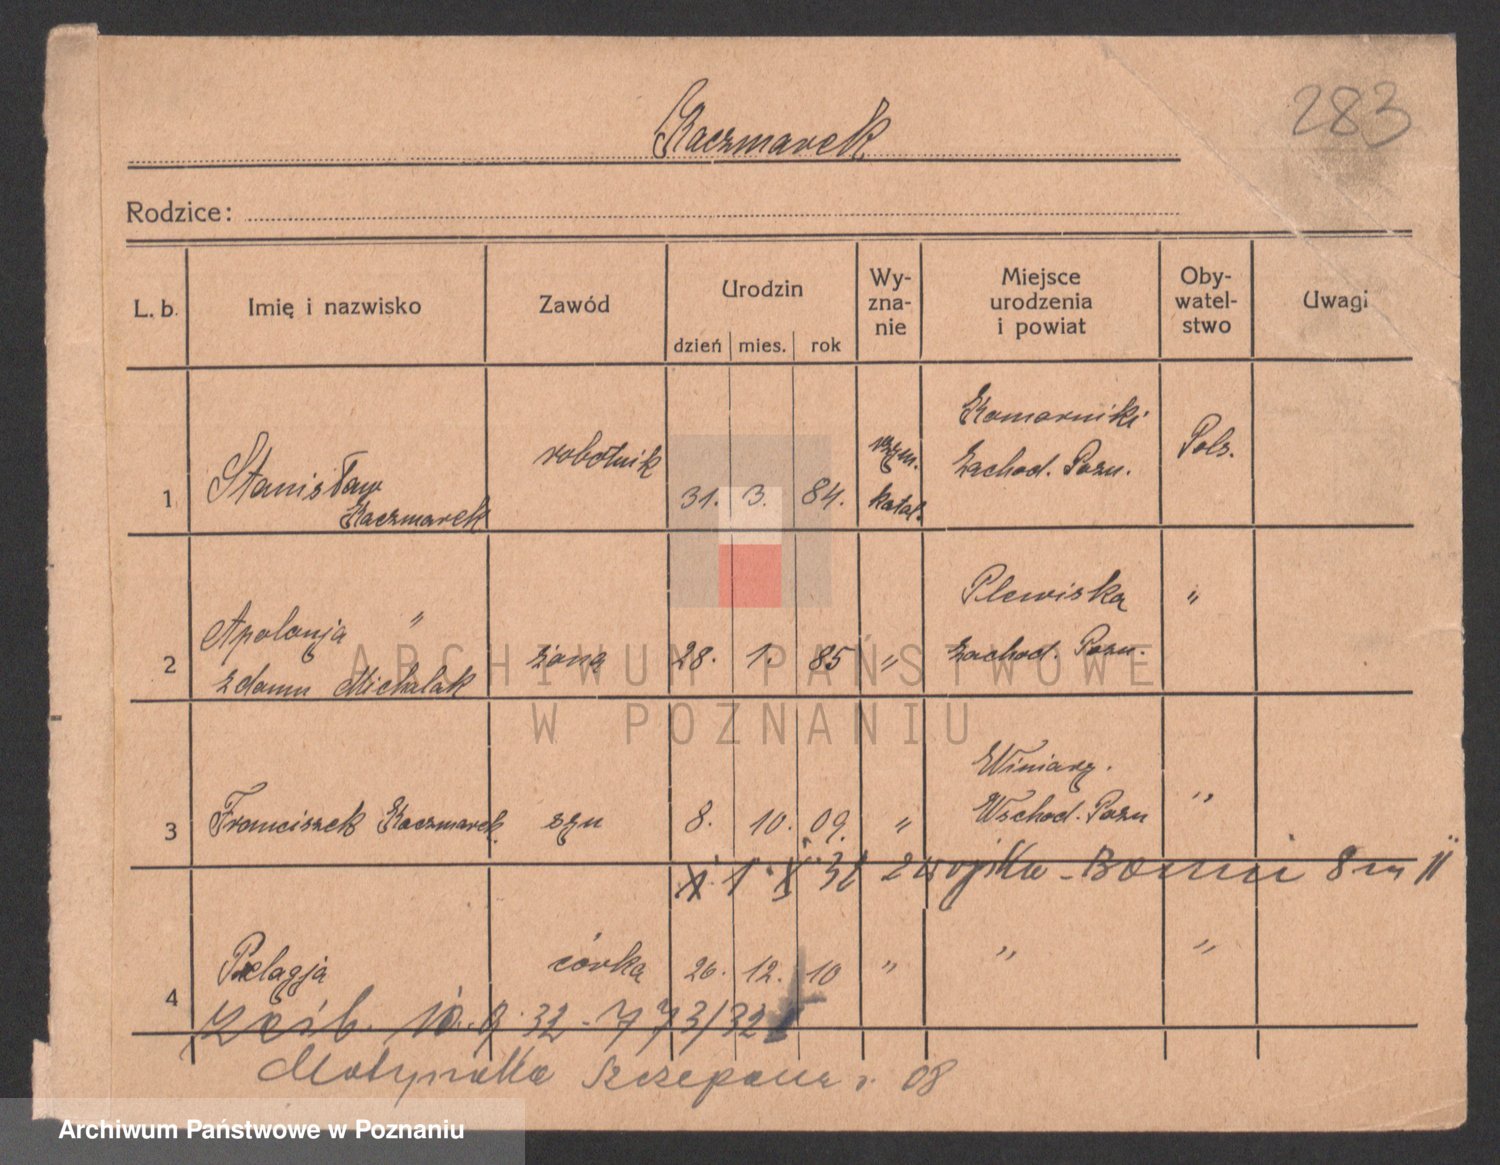 283
Kaczmarek
Rodzice:
L. b. Imię i nazwisko Zawód Urodzin dzień mies. rok Wy-zna-nie Miejsce urodzenia i powiat Oby-watel-stwo Uwagi
1 Stanisław Kaczmarek robotnik 31. 3. 84. rzym. katol. Komorniki Zachod. Pozn. Pols.
2 Apolonja " z domu Michalak żona 28. 1. 85 " Plewiska Zachod. Pozn. "
3 Franciszek Kaczmarek syn 8. 10. 09. " Winiary. Wschod. Pozn "
1 32 z wojska - 8 m 11
4 Pelagja córka 26. 12. 10 " " "
32 - 773/32
Szczepana 08
ARCHIWUM PAŃSTWOWE
W POZNANIU
Archiwum Państwowe w Poznaniu